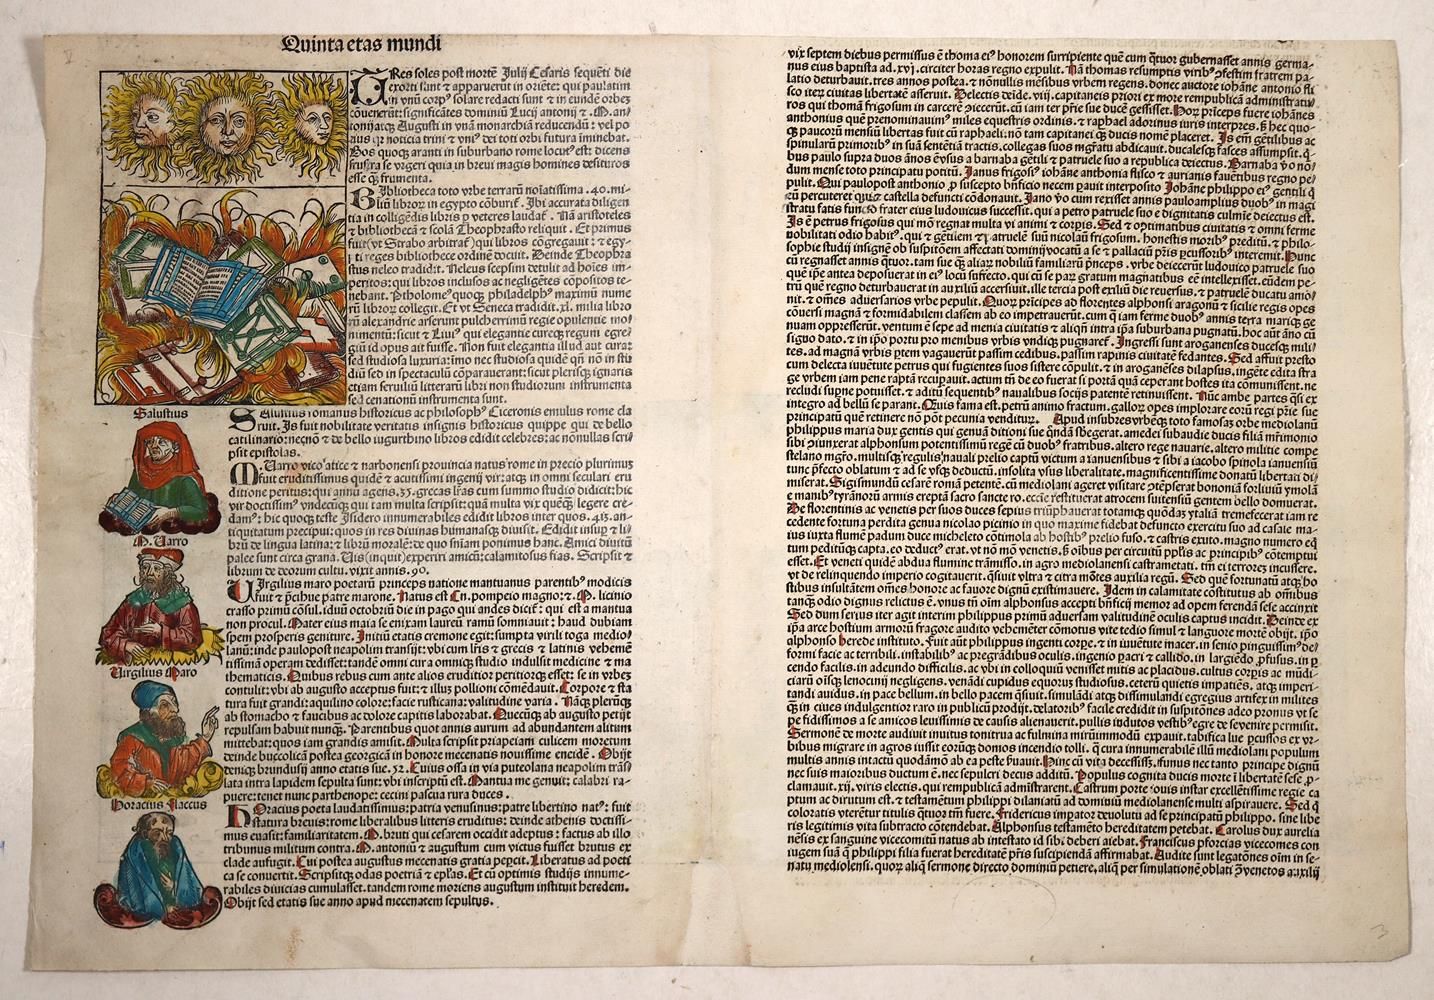 Quinta etas mundi
TRes soles post mortē Julij Cesaris sequēti die
exorti sunt & apparuerūt in oriēte: qui paulatim
in vnū corpꝰ solare redacti sunt & in eundē orbē
Bos quoqꝫ aranti in suburbano rome locutꝰ est: dicens
esse qꝫ frumenta.
BIbliotheca toto vrbe terrarū noīatissima .40. mi-
liū librorꝫ in egypto cōburit̄. Ibi accurata diligen
tia in colligēdis libris
& bibliothecā & scolā Theophrasto reliquit. Et primus
fuit (vt Strabo arbitrat̄) qui libros cōgregauit: & egy-
pti reges bibliothece ordinē docuit. Deinde Theophra
stus neleo tradidit. Neleus scepsim detulit ad hoīes im-
peritos: qui libros inclusos ac negligētes cōpositos te-
nebant. Ptholomeꝰ quoqꝫ philadelphꝰ maximū nume
rū librorꝫ collegit. Et vt Seneca tradidit .xl. milia libro
rū alexandrie arserunt pulcherrimū regie opulentie mo
nimentū: sicut & Liuiꝰ qui elegantie cureqꝫ regum egre
giū id opus ait fuisse. Non fuit elegantia illud aut cura:
sed studiosa luxuria: immo nec studiosa quidē qm̄ nō in stu
diū sed in spectaculū cōparauerant: sicut plerisqꝫ ignaris
etiam seruiliū litterarū libri non studiorum instrumenta
sed cenationū instrumenta sunt.
Salustius
SAlustius romanus historicus ac philosophꝰ Ciceronis emulus rome cla
ruit. Is fuit nobilitate veritatis insignis historicus quippe qui de bello
catilinario: necnō & de bello iugurthino libros edidit celebres: ac nōnullas scri
psit epistolas.
M. Varro
M. Varro
fuit eruditissimus quidē & acutissimi ingenij vir: atqꝫ in omni seculari eru
ditione peritus: qui annū agens .35. grecas lr̄as cum summo studio didicit: hic
vir doctissimꝰ vndecūqꝫ qui tam multa scripsit: quā multa vix quēqꝫ legere cre-
damꝰ: hic quoqꝫ teste Isidero innumerabiles edidit libros inter quos .413. an-
tiquitatum precipui: quos in res diuinas humanasqꝫ diuisit. Edidit insup & li-
brū de lingua latina: & librū morale: de quo
palee sunt circa grana. Vis (inquit) experiri amicū: calamitosus fias. Scripsit &
librum de deorum cultu. vixit annis .90.
Virgilius Maro
VIrgilius maro poetarū princeps natione mantuanus parentibꝰ modicis
fuit & p̄cibue patre marone. Natus est Cn. pompeio magno: & M. licinio
crasso primū cōsul. iduū octobriū die in pago qui andes dicit̄: qui est a mantua
non procul. Mater eius maia se enixam laureū ramū somniauit: haud dubiam
spem prosperis geniture. Initiū etatis cremone egit: sumpta virili toga medio-
lanū: inde paulopost neapolim transijt: vbi cum lr̄is & grecis & latinis veheme
tissimā operam dedisset: tandē omni cura omniqꝫ studio indulsit medicine & ma
thematicis. Quibus rebus cum ante alios eruditior peritiorqꝫ esset: se in vrbē
contulit: vbi ab augusto acceptus fuit: & illuꝫ pollioni cōmēdauit. Corpore & sta
tura fuit grandi: aquilino colore: facie rusticana: valitudine varia. Nāqꝫ plerūqꝫ
ab stomacho & faucibus ac dolore capitis laborabat. Quecūqꝫ ab augusto petijt
repulsam habuit nunqꝫ. Parentibus quot annis aurum ad abundantem alitum
mittebat: quos iam grandis amisit. Multa scripsit priapeiam culicem moretum
deinde buccolicā postea georgicā in honore mecenatis nouissime eneidē. Obijt
deniqꝫ brundusij anno etatis sue .52. Cuius ossa in via puteolana neapolim trās
lata intra lapidem sepulta sunt: vbi inscriptū est. Mantua me genuit: calabri ra-
puere: tenet nunc parthenope: cecini pascua rura duces.
Horacius Flaccus
HOracius poeta laudatissimus: patria venusinus: patre libertino natꝰ: fuit
statura breuis: rome liberalibus litteris eruditus: deinde athenis doctissi-
mus euasit: familiaritatem. M. bruti qui cesarem occidit adeptus: factus ab illo
tribunus militum contra. M. antoniū & augustum cum victus fuisset brutus ex
clade aufugit. Cui postea augustus mecenatis gratia pepcit. Liberatus ad poeti
ca se conuertit. Scripsitqꝫ odas poetriā & ep̄las. Et cū optimis studijs innume-
rabiles diuicias cumulasset. tandem rome moriens augustum instituit heredem.
Obijt sed etatis sue anno apud mecenatem sepultus.
vix septem diebus permissus ē thoma eiꝰ honorem surripiente quē cum q̄tuor gubernasset annis germa-
nus eius baptista ad .xvj. circiter horas regno expulit. Nā thomas resumptis viribꝰ ꝓfestim fratrem pa-
latio deturbauit. tres annos postea. & nōnullis mēsibus vrbem regens. donec auctore iohāne antonio fli
sco iterꝫ ciuitas libertatē asseruit. Delectis deīde .viij. capitaneis priori ex more rempublicā administratu
ros qui thomā frigosum in carcerē ꝓiecerūt. cū iam ter pr̄ie sue ducē gessisset. Horꝫ pr̄iceps fuere iohānes
anthonius quē prenominauimꝰ miles equestris ordinis. & raphael adorinus iuris interpres. ꝫ hec quo-
qꝫ paucorū mensiū libertas fuit cū raphaeli: nō tam capitanei qꝫ ducis nomē placeret. Is em̄ gētilibus ac
spinularū primoribꝰ in suā sentētiā tractis. collegas suos mgr̄atu abdicauit. ducalesqꝫ fasces assumpsit. q̄-
bus paulo supra duos ānos euersus a barnaba gētili & patruele suo a republica deiectus. Barnaba vo nō-
dum mense toto principatu potitū. Janus frigosiꝰ iohāne anthonia flisco & aurianis fauētibus regno pe
pulit. Qui paulopost anthonio ꝓ suscepto bn̄ficio necem pauit interposito Johāne philippo eiꝰ gentili q̄
eū percuteret quē & castella defuncti cōdonauit. Jano vo cum rexisset annis pauloampliꝰ duobꝰ in magi
stratu fatis functo frater eius ludouicus successit. qui a petro patruele suo e dignitatis culmīe deiectus est.
Is ē petrus frigosus qui mō regnat multa vi animi & corpis. Sed & optimatibus ciuitatis & omni ferme
nobilitati odio habitꝰ. qui & gētilem & patruele suū nicolaū frigosum. honestis moribꝰ preditū. & philo-
sophie studijs insignē ob suspitōem affectati dominij vocatū a se & pallaciū p̄sis pcussoribꝰ interemit. Hunc
cū regnasset annis q̄tuor. tam sue qꝫ aliarꝫ nobiliū familiarū pn̄ceps. vrbe deiecerūt ludouico patruele suo
que ip̄e antea deposuerat in eiꝰ locū suffecto. qui cū se parꝫ gratum magnatibus eē intellexisset. eūdem pe-
trū quē regno deturbauerat in auxiliū accersiuit. ille tercia post exiliū die reuersus. & patruelē ducatu amo-
uit. & om̄es aduersarios vrbe pepulit. Quorꝫ pr̄icipes ad florentes alphonsi aragonū & sicilie regis opes
cōuersi magnā & formidabilem classem ab eo impetrauerūt. cum q̄ iam ferme duobꝰ annis terra mariqꝫ ge
nuam oppresserūt. ventum ē sepe ad menia ciuitatis & aliqn̄ intra ip̄a suburbana pugnatū. hoc aūt āno cū
siguo dato. & in ip̄o portu pro menibus vrbis vndiqꝫ pugnaref̄. Ingressi sunt aroganenses ducesqꝫ mili-
tes. ad magnā vrbis ptem vagauerūt passim cedibus. passim rapinis ciuitatē fedantes. Sed affuit presto
cum delecta iuuētute petrus qui fugientes suos sistere cōpulit. & in aroganēses dilapsus. ingēte edita stra
ge vrbem iam pene raptā recupauit. actum tn̄ de eo fuerat si portā quā ceperant hostes ita cōmunissent. ne
recludi supne potuisset. & aditū sequentibꝰ naualibus socijs patentē retinuissent. Nūc ambe partes q̄si ex
integro ad bellū se parant. Quis fama est. petrū animo fractum. gallorꝫ opes implorare eorū regi pr̄ie sue
principatū quē retinere nō pōt pecunia venditurꝫ. Apud insubres vrbēqꝫ toto famosaꝫ orbe mediolanū
philippus maria dux gentis qui genuā ditioni sue q̄ndā sbegerat. amedei subaudie ducis filiā mr̄imonio
sibi ꝓiunxerat alphonsum potentissimū regē cū duobꝰ fratribus. altero rege nauarie. altero militie compe
stelano mgr̄o. multisqꝫ regulis nauali prelio captū victum a ianuensibus & sibi a iacobo spinola ianuensiū
tunc p̄fecto oblatum & ad se vsqꝫ deductū. insolita vsus liberalitate. magnificentissime donatū libertati di-
miserat. Sigismundū cesarē romā petentē. cū mediolani ageret visitare ꝯtēpserat bononiā forliuiū ymolā
e manibꝰ tyrānorū armis ereptā sacro sancte ro. eccl̄e restituerat atrocem suitensiū gentem bello domuerat.
De florentinis ac venetis per suos duces sepius triūphauerat totamqꝫ quōdaꝫ ytaliā tremefecerat iam re
cedente fortuna perdita genua nicolao picinio in quo maxime fidebat defuncto exercitu suo ad casale ma-
ius iuxta flumē padum duce micheleto cōtimola ab hostibꝰ prelio fuso. & castris exuto. magno numero eq̄
tum peditūqꝫ capta. eo deductꝰ erat. vt nō mō venetis. ꝫ oībus per circuitū pplis ac principibꝰ cōtemptui
esset. Et veneti quidē abdua flumine trāmisso. in agro mediolanensi castrametati. tm̄ ei terrorē incussere.
vt de relinquendo imperio cogitauerit. q̄siuit vltra & citra mōtes auxilia regū. Sed quē fortunatū atqꝫ ho
stibus insultātem om̄es honore ac fauore dignū existimauere. Idem in calamitate cōstitutus ab om̄ibus
tanqꝫ odio dignus relictus ē. vnus tn̄ oīm alphonsus accepti bn̄ficij memor ad opem ferendā sese accinxit
Sed dum serius iter agit interim philippus primū aduersam valitudinē oculis captus incidit. Deinde ex
ip̄a arce hostium armorū fragore audito vehemēter cōmotus vite tedio simul & languore mortē obijt. ip̄o
alphonso herede instituto. Fuit aūt philippus ingenti corpe. & in iuuētute macer. in senio pinguissimꝰ de-
formi facie ac terribili. instabilibꝰ ac pregrādibus oculis. ingenio ꝓaci & callido. in largiēdo ꝓfusus. in p̄
cendo facilis. in adeundo difficilis. ac vbi in colloquiū venisset mitis ac placidus. cultus corpis ac mūdi-
ciarū oīsqꝫ lenocinij negligens. venādi cupidus equorꝫ studiosus. ceterū quietis impatiēs. atqꝫ imperi-
tandi auidus. in pace bellum. in bello pacem q̄siuit. simulādi atqꝫ dissimulandi egregius artifex in milites
q̄ꝫ in ciues indulgentior raro in publicū prodijt. delatoribꝰ facile credidit in suspitōnes adeo pronus vt se
pe fidissimos a se amicos leuissimis de causis alienauerit. pullis indutos vestibꝰ egre de se venire permisit.
Sermonē de morte audiuit inuitus tonitrua ac fulmina mirūimmodū expauit. tabifica lue pcussos ex vr-
bibus migrare in agros iussit eorūqꝫ domos incendio tolli. q̄ cura innumerabilē illū mediolani populum
multis annis intactū quodāmō ab ea peste seruauit. Hinc cū vita decessisset. funus nec tanto principe dignū
nec suis maioribus ductum ē. nec sepulcri decus additū. Populus cognita ducis morte ī libertatē sese ꝓ-
clamauit. xij. viris electis. qui rempublicā adm̄strarent. Castrum porte iouis instar excellētissime regie ca
ptum ac dirutum est. & testamētum philippi dilaniatū ad dominiū mediolanense multi aspirauere. Sed q̄
coloratis vterētur titulis q̄tuor tm̄ fuere. Fridericus imp̄ator deuolutū ad se principatū philippo. sine libe
ris legitimis vita subtracto cōtendebat. Alphonsus testamēto hereditatem petebat. Carolus dux aurelia
nēsis ex sanguine vicecomitū natus ab intestato id sibi deberi aiebat. Franciscus pforcias vicecomes con
iugem suā q̄ philippi filia fuerat hereditatē pr̄is suscipiendā affirmabat. Audite sunt legatōnes oīm in se-
natu mediolensi. quorꝫ aliq̄ sermone directo dominiū petiere. aliq̄ per simulationē oblati ꝯ venetos auxilij
3